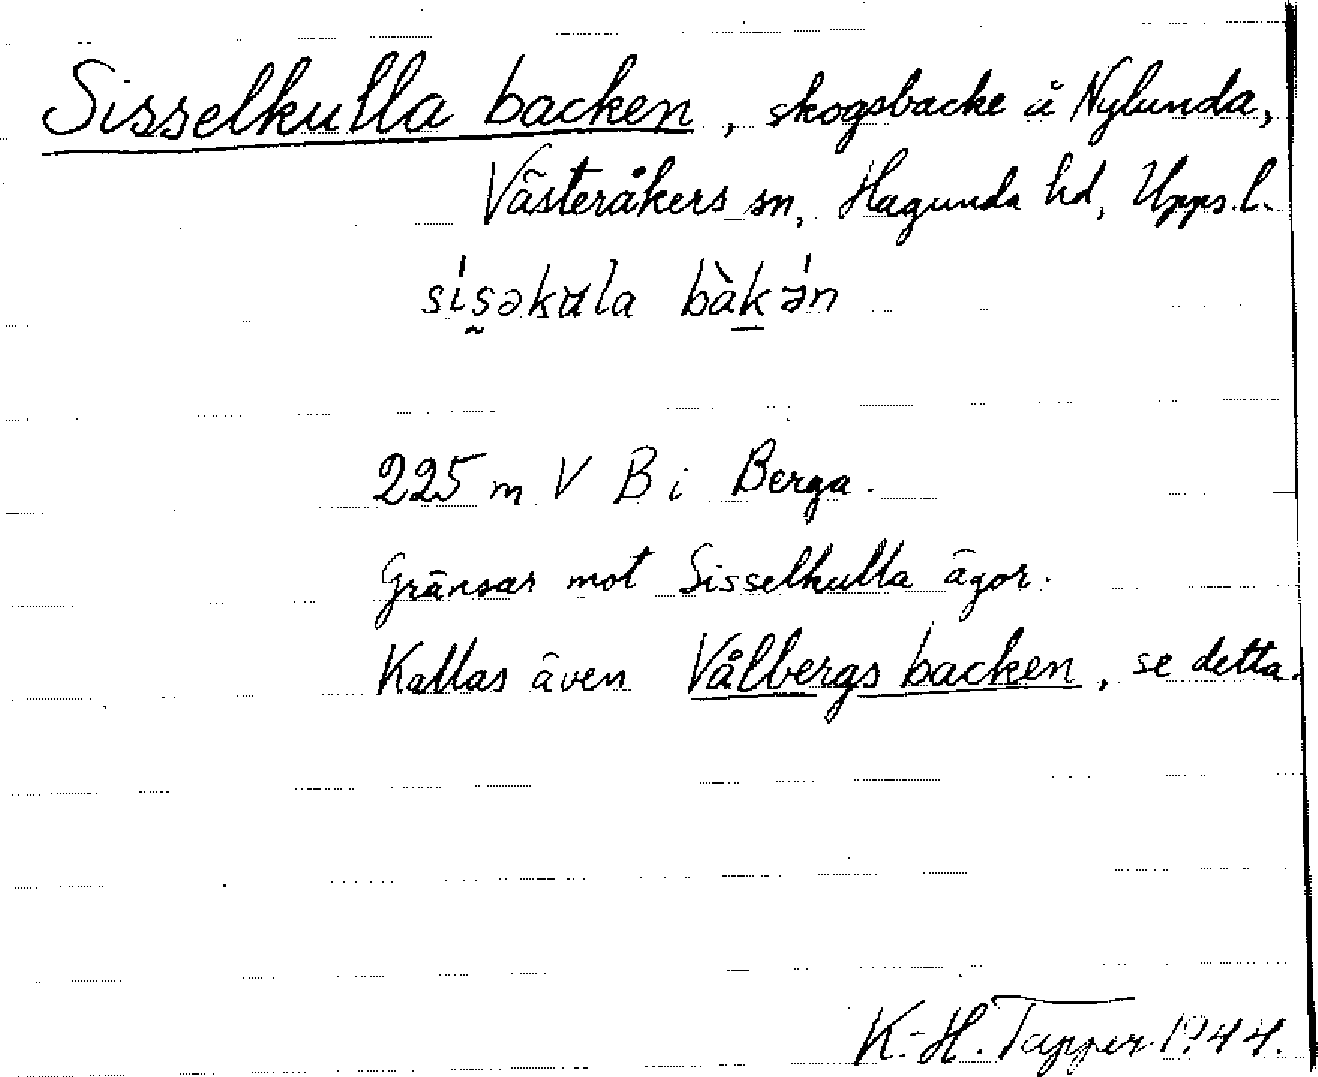 Sisselkulla backen, skogsbacke å Nylunda,
Västeråkers sn, Hagunda hd, Upps. l.
sisəkʉla bàkən
225 m V B i Berga.
Gränsar mot Sisselkulla ägor.
Kallas även Vålbergs backen, se detta.
K.-H. Tapper 1944.